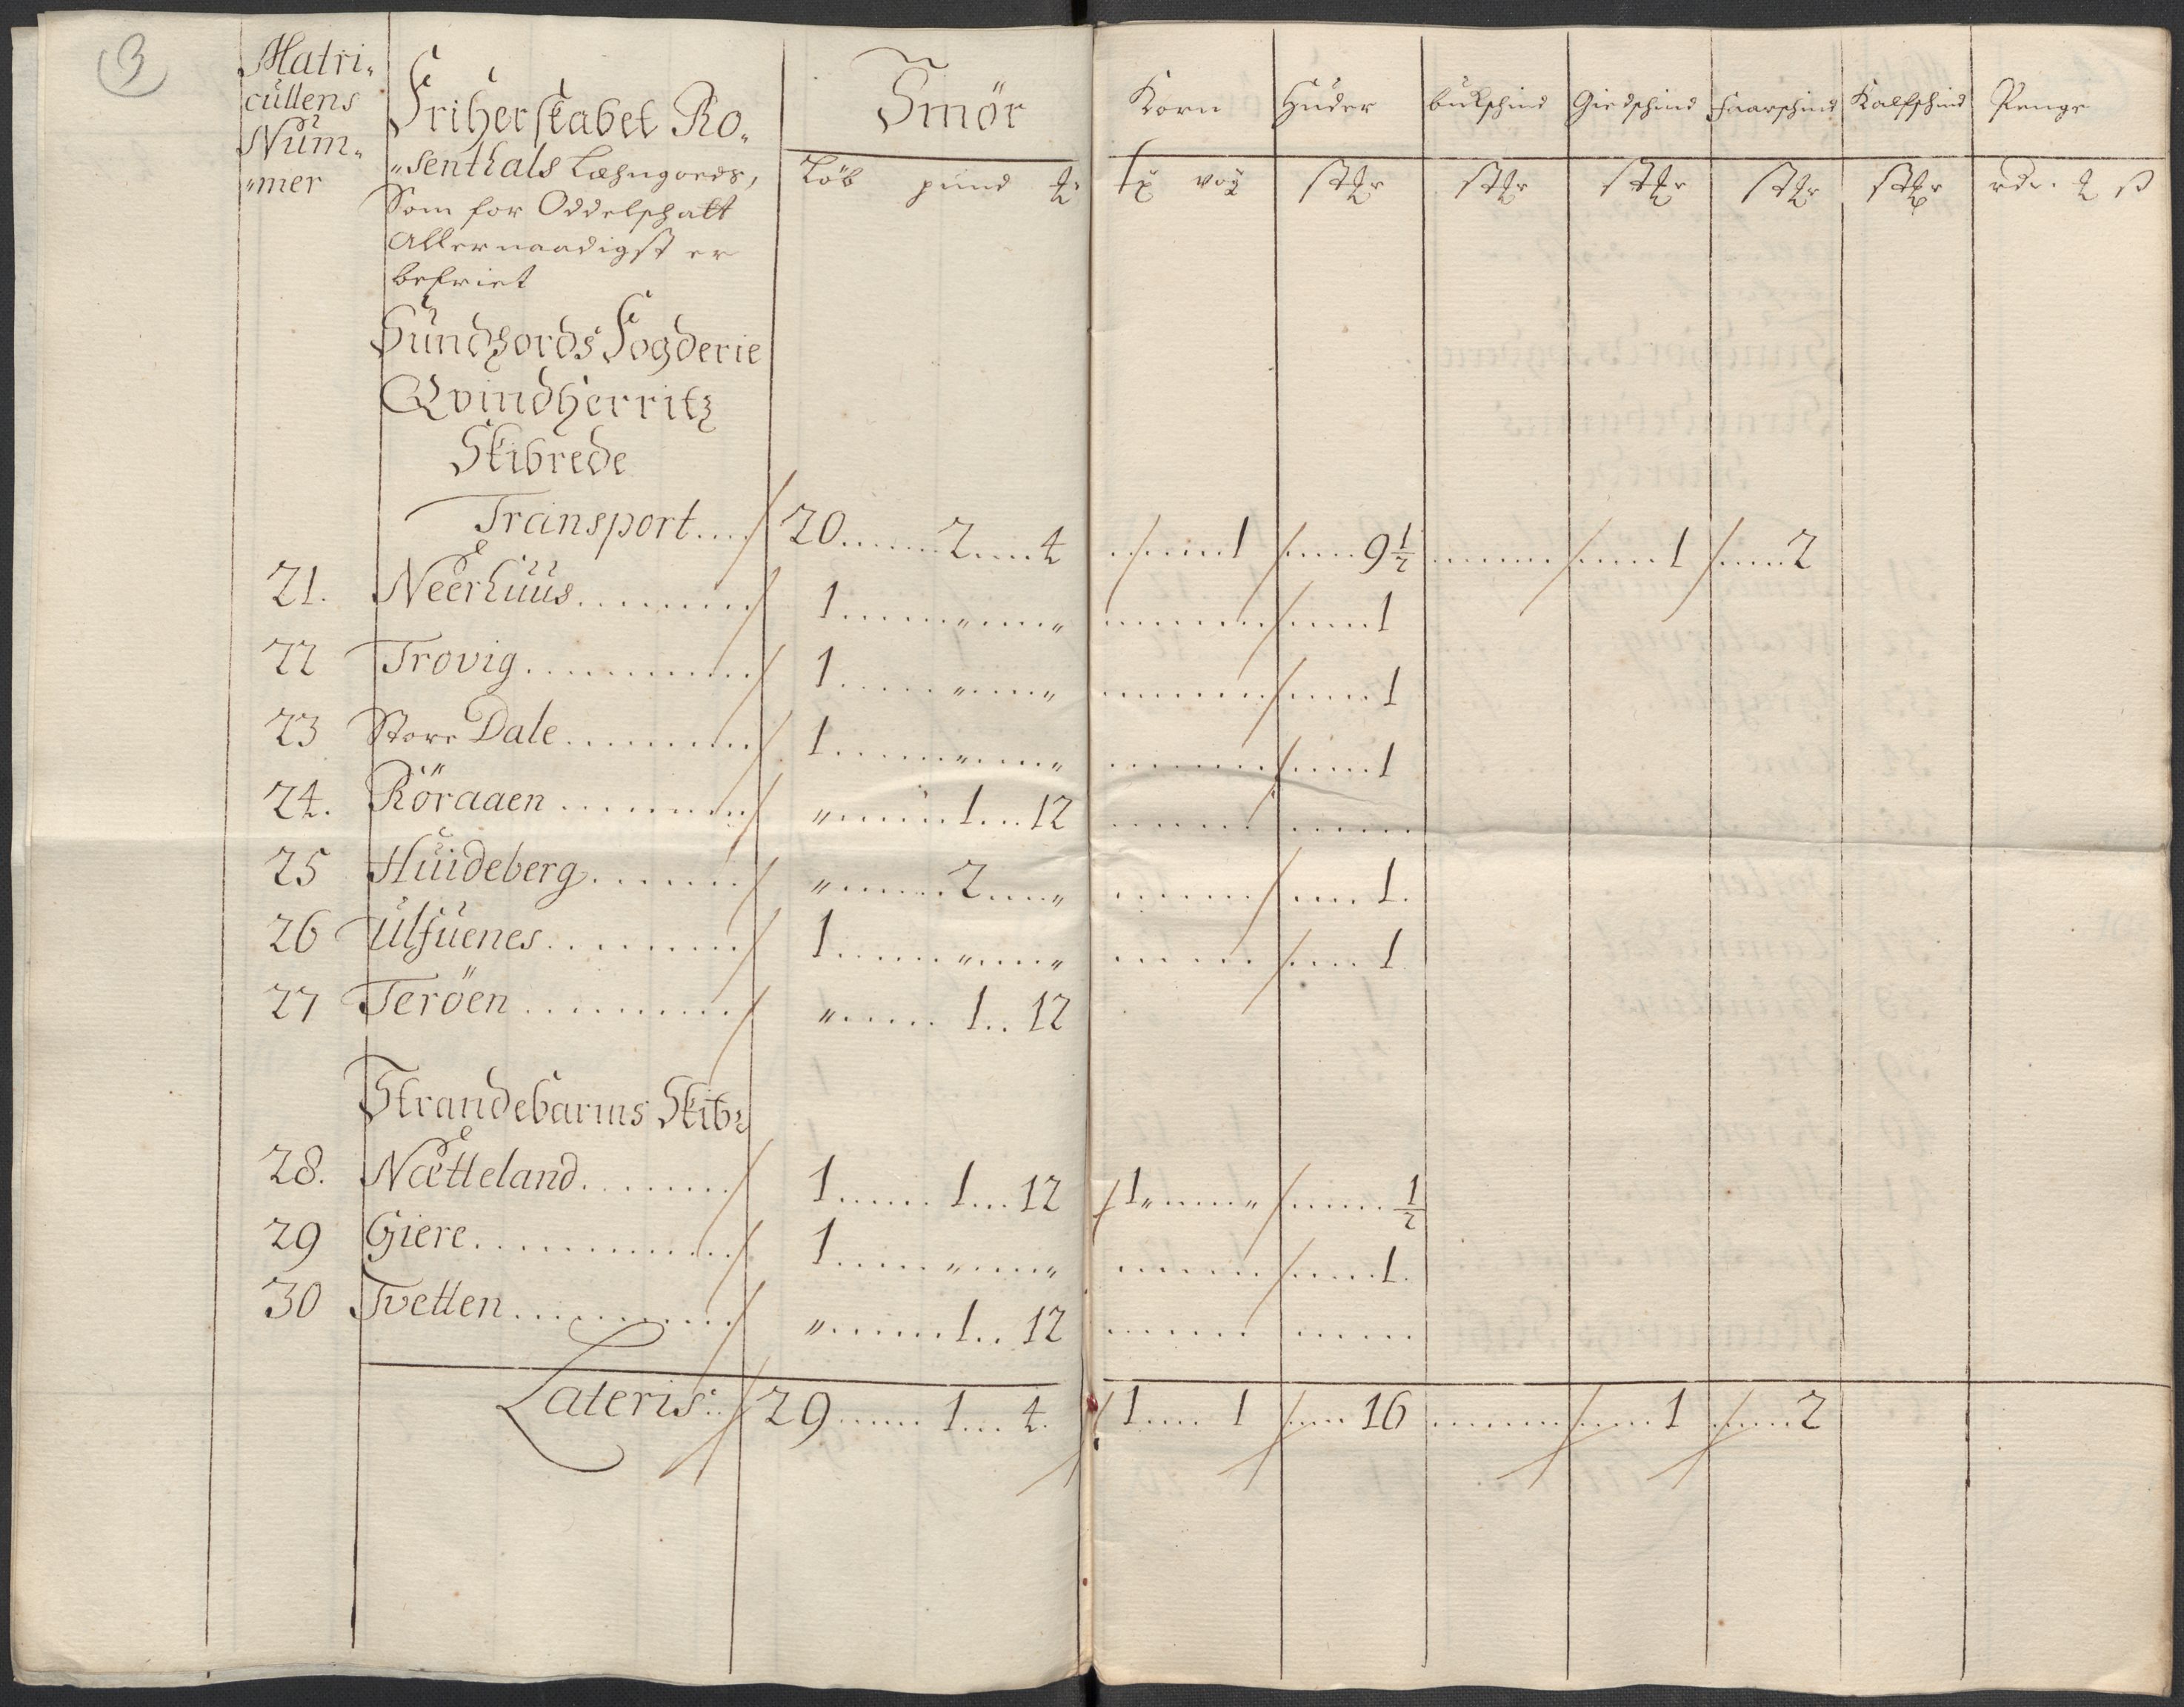 3
Matri„
cullens
Num„
„mer
Friherskabet Ro„
„senthals Læhngoeds,
Som for Oddelschatt
Allernaadigst er
befriet
Smör
Löb pund
Korn Huder bukschind Giedschind Faarschind Kalfschind Penge
Sundhords Fogderie
Qvindherritz
Skibrede
Transport.... 20......2....4 ......1 .....9½ ....... .....1 .....2
21. Neerhuus......... 1......„....„ ........ .....1
22 Trovig.......... 1......„....„ ........ .....1
23 Store Dale......... 1......„....„ ........ .....1
24. Röraaen ........ „......1...12 ....... ......
25 Huideberg....... „......2....„ ....... .... 1.
26 Ulfuenes.......... 1......„....„ ...... .... 1
27 Teröen........... „..... 1.. 12
Strandebarms Skibr
28. Nætteland........ 1...... 1... 12 1„.....„ ......½
29 Giere............. 1......„....„ ....... .....1.
30 Tvetten........... „......1.. 12 ....... ......
Lateris:.. 29...... 1... 4. 1.... 1 .... 16 ....... .....1 .....2